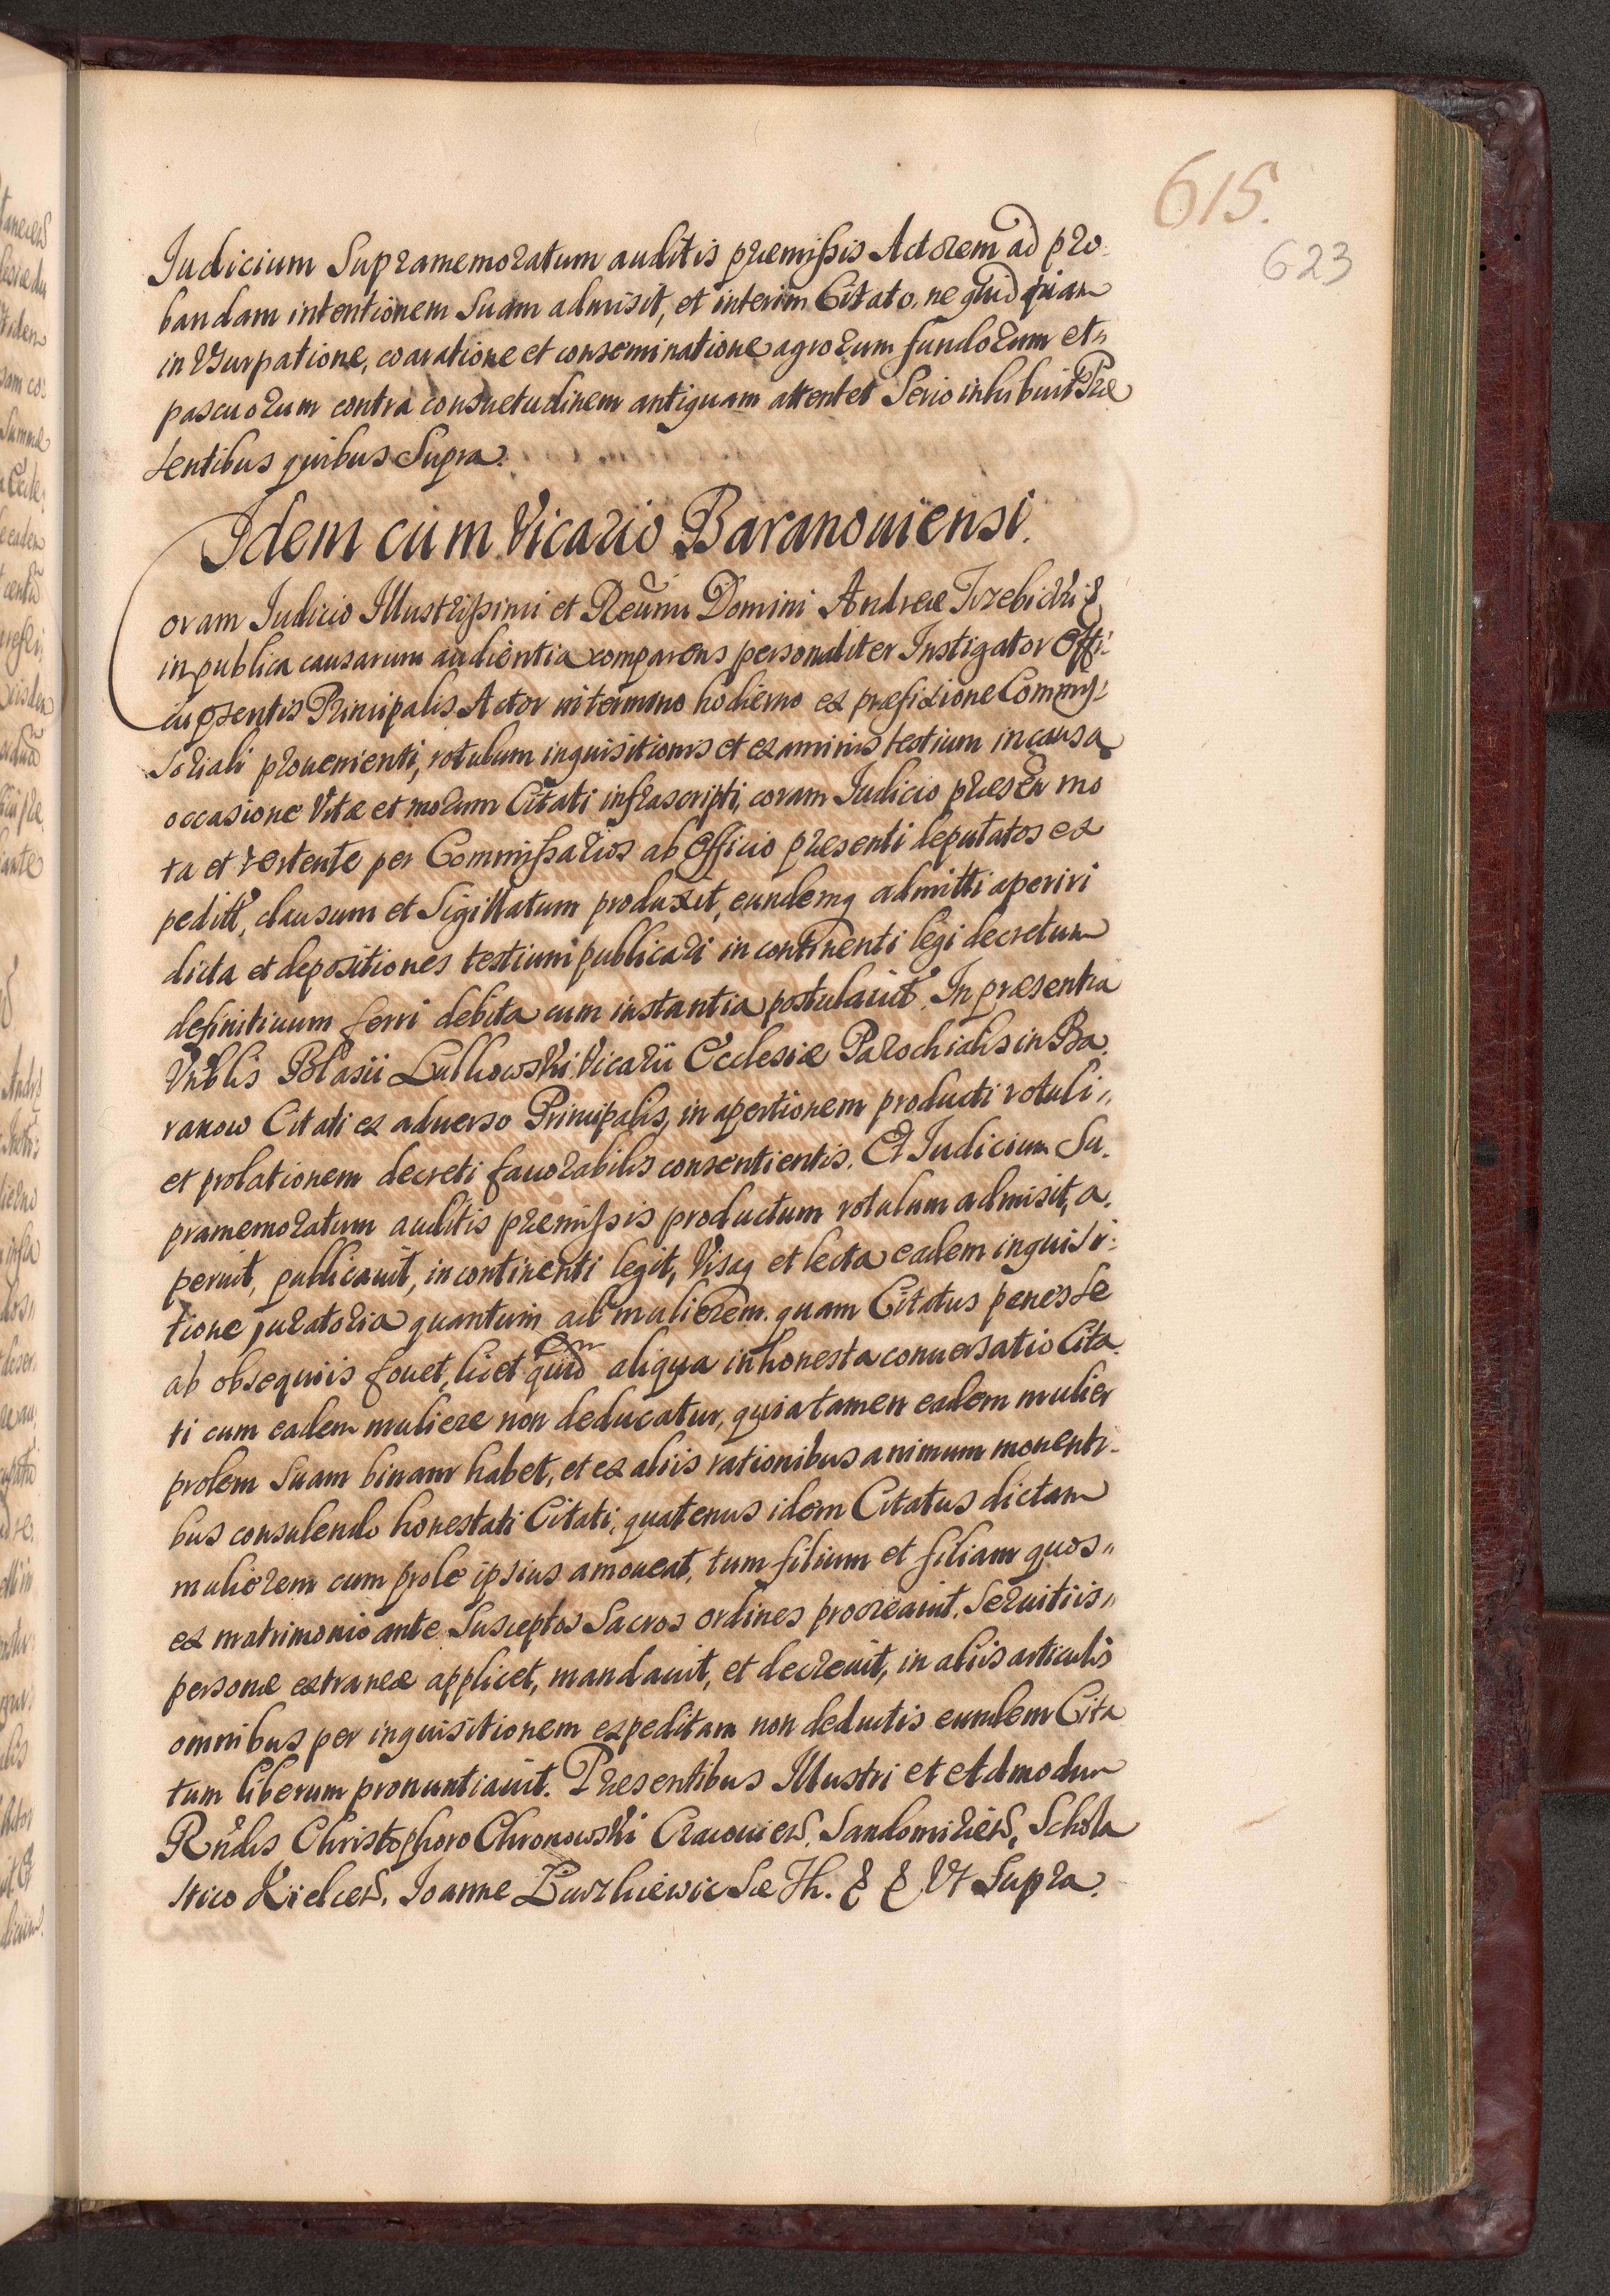 615.
623
Judicium Supramemoratum auditis præmissis Actorem ad pro
bandam intentionem Suam admisit, et interim Citato, ne quidquam
in Vsurpatione, coaratione et conseminatione agrorum fundorum et
pascuorum contra consuetudinem antiquam attentet Serio inhibuit Præ
sentibus quibus Supra.
Idem cum Vicario Baranoviensi.
Coram Iudicio Illustrissimi et Reũmi Domini Andreæ Trzebicki &
in publica causarum audientia comparens personaliter Instigator Offi:
cii p̃sentis Principalis Actor in termino hodierno ex præfixione Commis:
soriali prouenienti, rotulum inquisitionis et examinis testium in causa
occasione Vitæ et morum Citati infrascripti, coram Iudicio præsẽn mo
ta et vertente per Commissarios ab Officio præsenti deputatos ex
peditũ, clausum et Sigillatum produxit, eundemq admitti aperiri
dicta et depositiones testium publicari in continenti legi decretum
definitiuum ferri debita cum instantia postulauit. In præsentia
Vnblis Blasii Lulkowski Vicarii Ecclesiæ Parochialis in Ba
ranow Citati ex aduerso Principalis, in apertionem producti rotuli
et prolationem decreti fauorabilis consentientis. Et Iudicium Su
pramemoratum auditis præmissis productum rotulum admisit, a
peruit, publicauit, in continenti legit, Visaq et lecta eadem inquisi:
tione juratoria quantum ad mulierem quam Citatus penes se
ab obsequiis fouet, licet quidem aliqua inhonesta conuersatio Cita
ti cum eadem muliere non deducatur, quia tamen eadem mulier
prolem Suam binam habet, et ex aliis rationibus animum mouenti
bus consulendo honestati Citati, quatenus idem Citatus dictam
mulierem cum prole ipsius amoueat, tum filium et filiam quos
ex matrimonio ante Susceptos Sacros ordines procreauit, Seruitiis
personæ extraneæ applicet, mandauit, et decreuit, in aliis articulis
omnibus per inquisitionem expeditam non deductis eundem Cita
tum liberum pronuntiauit. Præsentibus Illustri et Admodum
Rñdis Christophoro Chronowski Cracouieñ. Sandomirieñ, Schola
stico Kielceñ. Ioanne Sæ Th. & & Vt Supra.